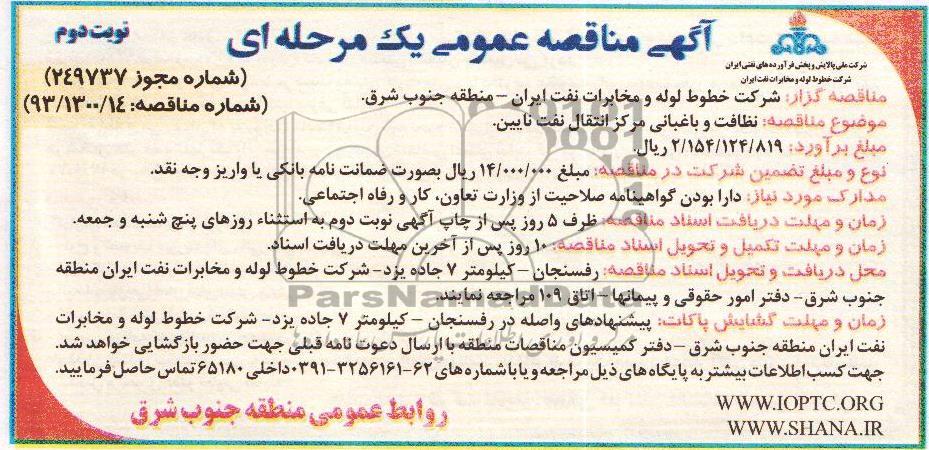 آگهی مناقصه عمومی یک مرحله ای
نوبت دوم
شرکت ملی پالایش و پخش فرآورده های نفتی ایران
شرکت خطوط لوله و مخابرات نفت ایران
(شماره مجوز ۲۴۹۷۳۷)
(شماره مناقصه: ۹۳/۱۳۰۰/۱۴)
مناقصه گزار: شرکت خطوط لوله و مخابرات نفت ایران - منطقه جنوب شرق.
موضوع مناقصه: نظافت و باغبانی مرکز انتقال نفت نایین.
مبلغ برآورد: ۲/۱۵۴/۱۲۴/۸۱۹ ریال.
نوع و مبلغ تضمین شرکت در مناقصه: مبلغ ۱۴/۰۰۰/۰۰۰ ریال بصورت ضمانت نامه بانکی یا واریز وجه نقد.
مدارک مورد نیاز: دارا بودن گواهینامه صلاحیت از وزارت تعاون، کار و رفاه اجتماعی.
زمان و مهلت دریافت اسناد مناقصه: ظرف ۵ روز پس از چاپ آگهی نوبت دوم به استثناء روزهای پنج شنبه و جمعه.
زمان و مهلت تکمیل و تحویل اسناد مناقصه: ۱۰ روز پس از آخرین مهلت دریافت اسناد.
محل دریافت و تحویل اسناد مناقصه: رفسنجان - کیلومتر ۷ جاده یزد- شرکت خطوط لوله و مخابرات نفت ایران منطقه
جنوب شرق- دفتر امور حقوقی و پیمانها - اتاق ۱۰۹ مراجعه نمایند.
زمان و مهلت گشایش پاکات: پیشنهادهای واصله در رفسنجان - کیلومتر ۷ جاده یزد- شرکت خطوط لوله و مخابرات
نفت ایران منطقه جنوب شرق -دفتر کمیسیون مناقصات منطقه با ارسال دعوت نامه قبلی جهت حضور بازگشایی خواهد شد.
جهت کسب اطلاعات بیشتر به پایگاه های ذیل مراجعه و یا با شماره های ۶۲-۳۲۵۶۱۶۱-۰۳۹۱ داخلی ۶۵۱۸۰ تماس حاصل فرمایید.
WWW.IOPTC.ORG
WWW.SHANA.IR
روابط عمومی منطقه جنوب شرق
ParsNamadData